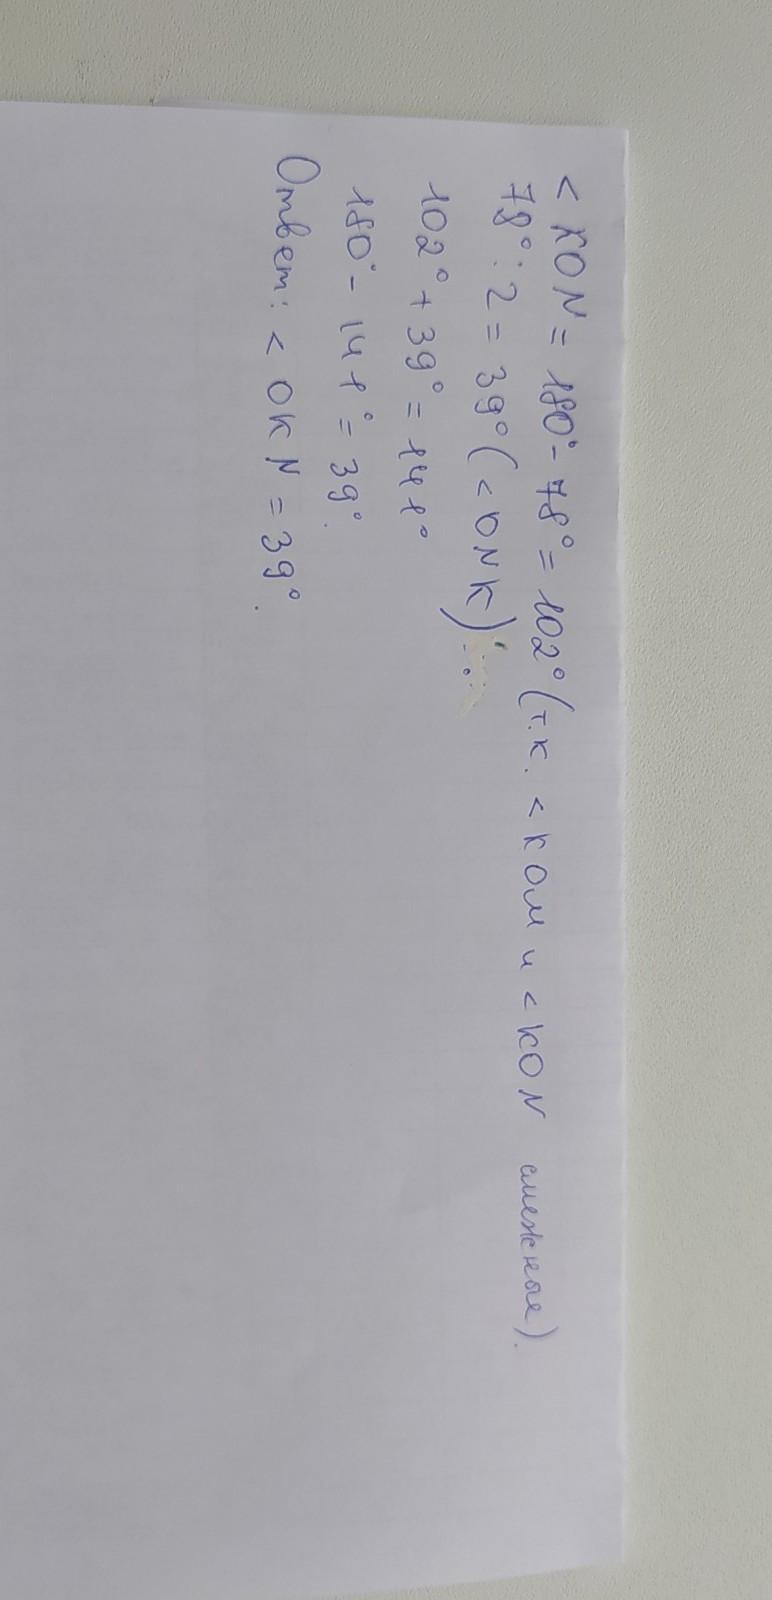 < KON = 180° - 78° = 102° (т.к. < КОМ и < KON смежные).
78° : 2 = 39° (< ONK).
102° + 39° = 141°
180° - 141° = 39°.
Ответ: < OKN = 39°.